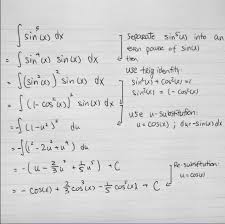 ∫ sin⁵(x) dx
= ∫ sin⁴(x) sin(x) dx
= ∫ (sin²(x))² sin(x) dx
= ∫ (1-cos²(x))² sin(x) dx
= -∫ (1-u²)² du
= -∫ (1²-2u²+u⁴) du
= -(u - 2/3 u³ + 1/5 u⁵) + C
= -cos(x) + 2/3 cos³(x) - 1/5 cos⁵(x) + C
Separate sin⁵(x) into an
even power of sin(x)
then
we use trig identity:
sin²(x) + cos²(x) = 1
sin²(x) = 1 - cos²(x)
use u-substitution:
u = cos(x); du = -sin(x) dx
Re-substitution:
u = cos(x)